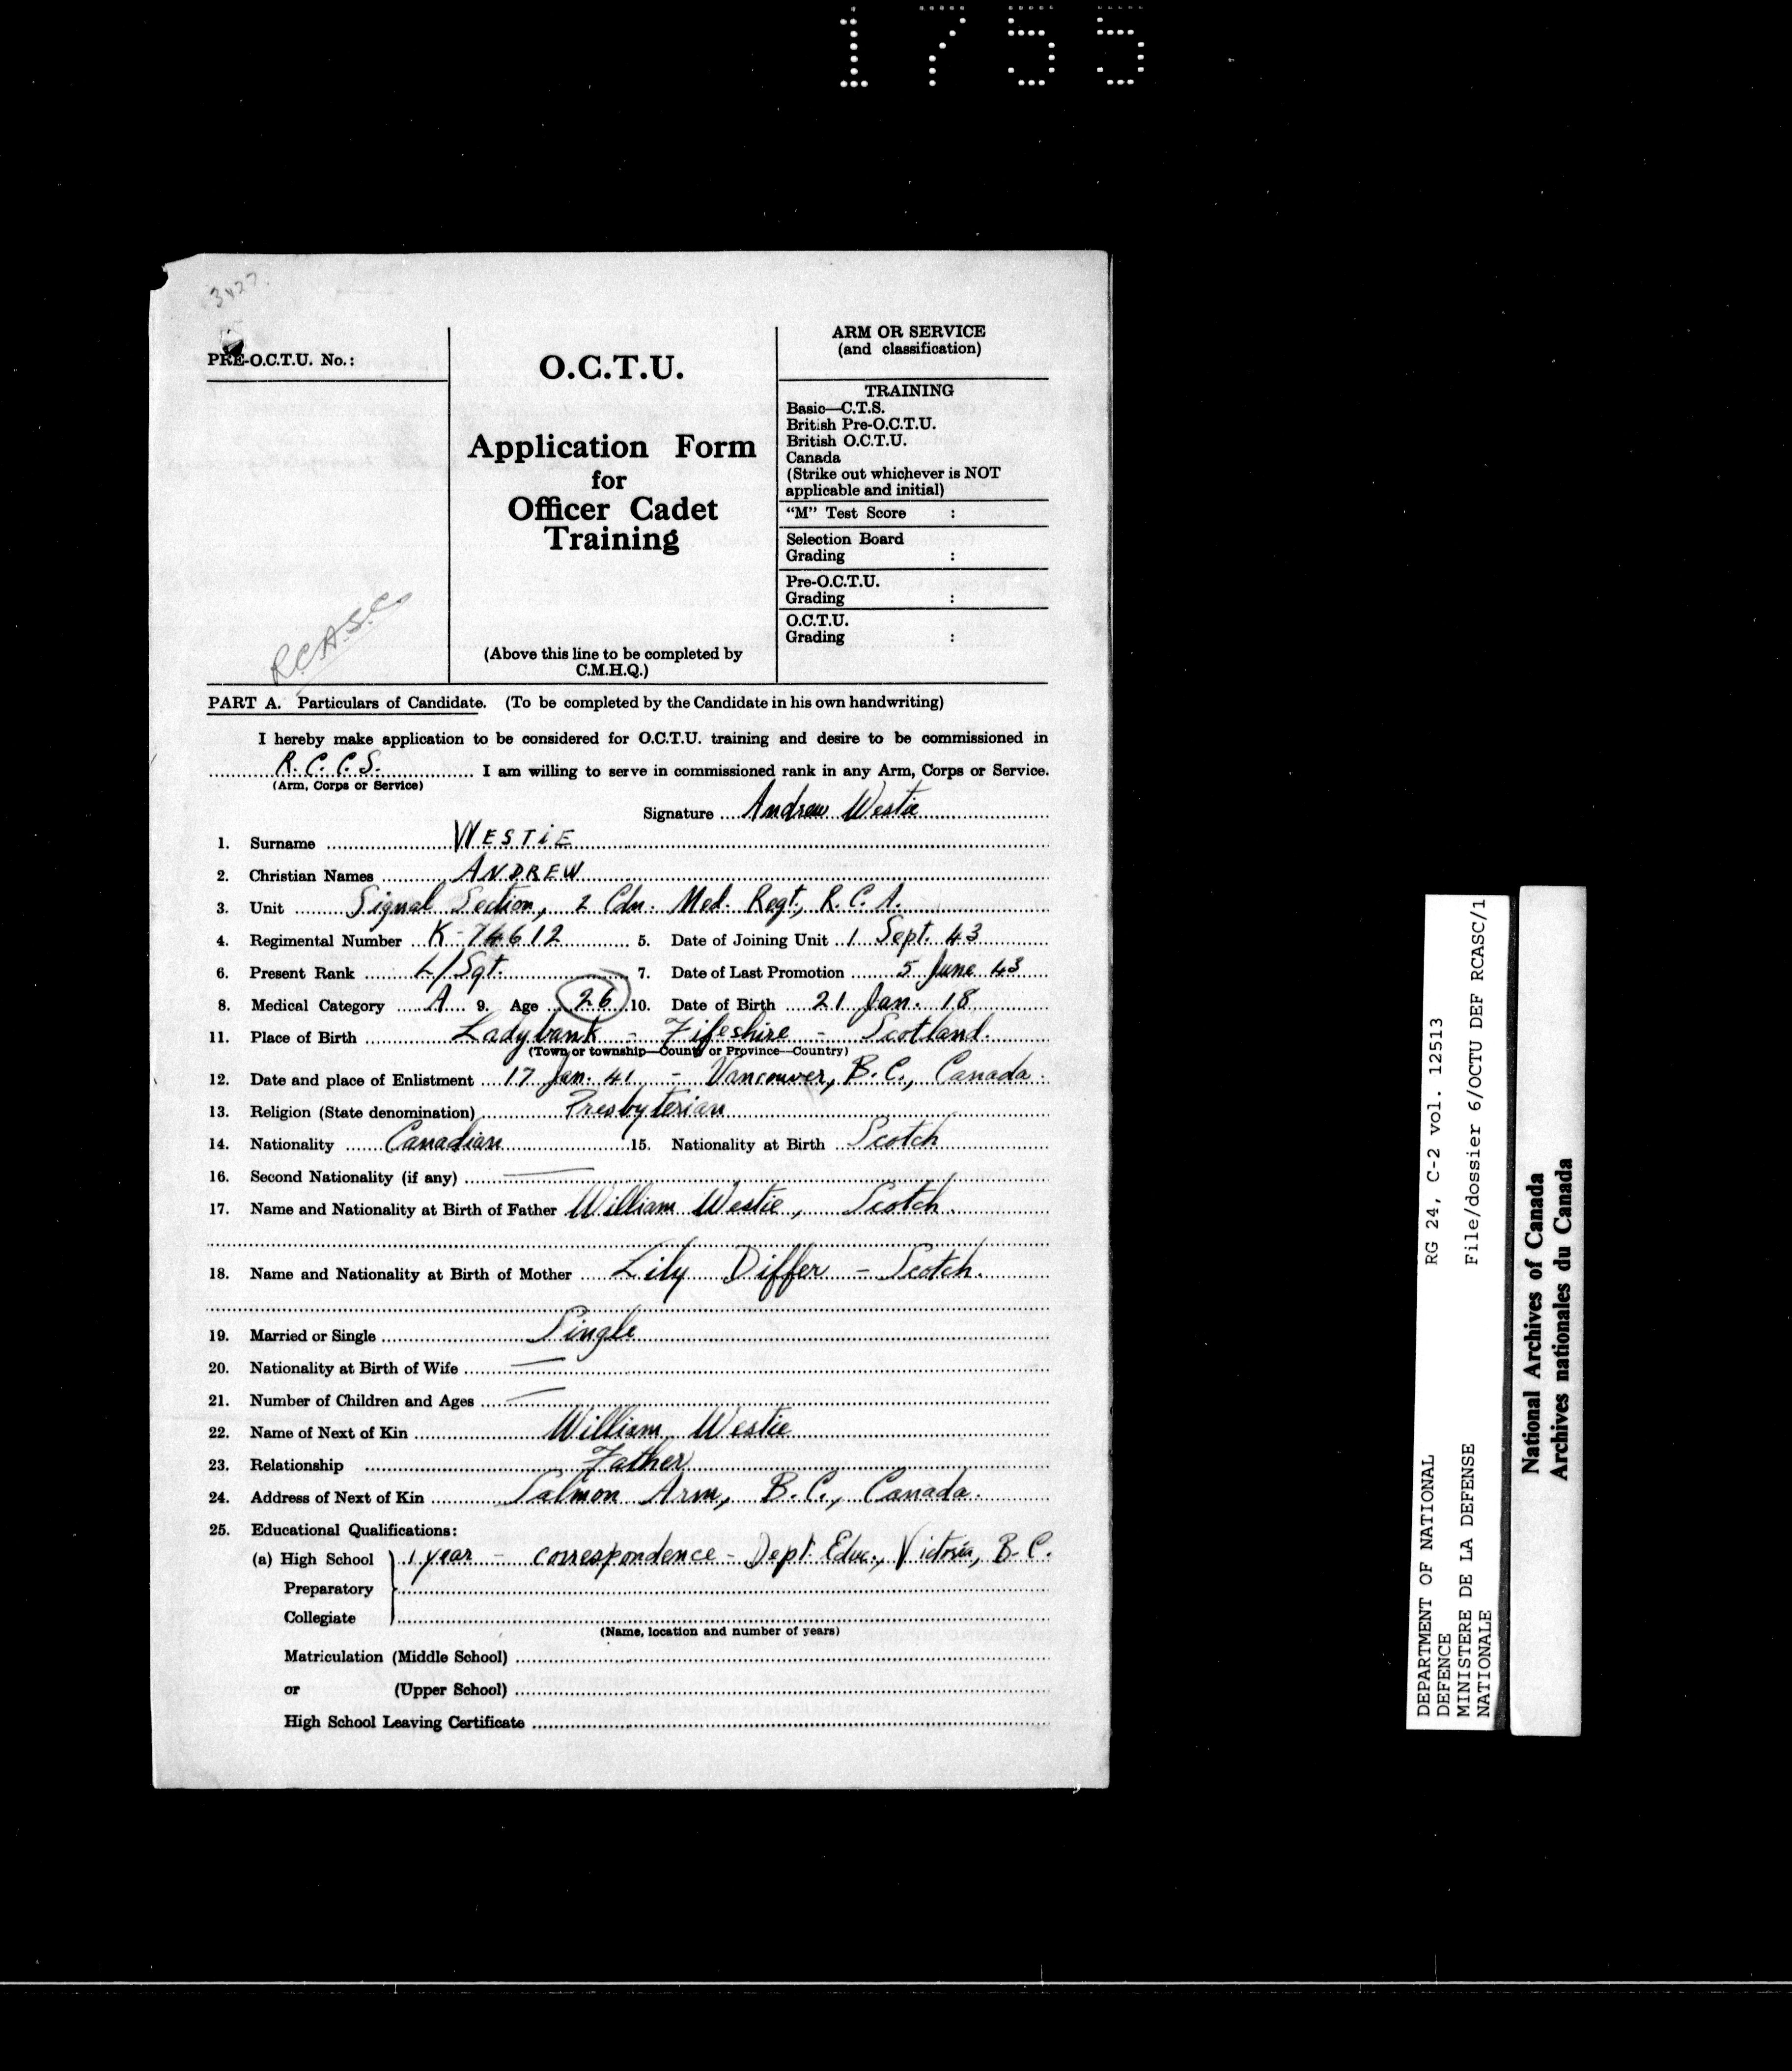 1755
3427.
PRE-O.C.T.U. No.:
R.C.A.S.C.
O.C.T.U.
Application Form
for
Officer Cadet
Training
(Above this line to be completed by
C.M.H.Q.)
ARM OR SERVICE
(and classification)
TRAINING
Basic—C.T.S.
British Pre-O.C.T.U.
British O.C.T.U.
Canada
(Strike out whichever is NOT
applicable and initial)
"M" Test Score :
Selection Board
Grading :
Pre-O.C.T.U.
Grading :
O.C.T.U.
Grading :
PART A. Particulars of Candidate. (To be completed by the Candidate in his own handwriting)
I hereby make application to be considered for O.C.T.U. training and desire to be commissioned in
R.C.C.S. I am willing to serve in commissioned rank in any Arm, Corps or Service.
(Arm, Corps or Service)
Signature Andrew Westie
1. Surname WESTiE
2. Christian Names ANDREW
3. Unit Signal Section, 2 Cdn. Med. Regt, R.C.A.
4. Regimental Number K-74612 5. Date of Joining Unit 1 Sept. 43
6. Present Rank L/Sgt. 7. Date of Last Promotion 5 June 43
8. Medical Category A 9. Age 26 10. Date of Birth 21 Jan. 18
11. Place of Birth Ladybank - Fifeshire - Scotland.
(Town or township—County or Province—Country)
12. Date and place of Enlistment 17 Jan. 41 - Vancouver, B.C., Canada.
13. Religion (State denomination) Presbyterian
14. Nationality Canadian 15. Nationality at Birth Scotch
16. Second Nationality (if any) —
17. Name and Nationality at Birth of Father William Westie, Scotch.
18. Name and Nationality at Birth of Mother Lily Differ - Scotch.
19. Married or Single Single
20. Nationality at Birth of Wife —
21. Number of Children and Ages —
22. Name of Next of Kin William Westie
23. Relationship Father
24. Address of Next of Kin Salmon Arm, B.C., Canada.
25. Educational Qualifications:
(a) High School 1 year - correspondence - Dept. Educ., Victoria, B.C.
Preparatory
Collegiate
(Name, location and number of years)
Matriculation (Middle School)
or (Upper School)
High School Leaving Certificate
DEPARTMENT OF NATIONAL RG 24, C-2 vol. 12513
DEFENCE
MINISTERE DE LA DEFENSE File/dossier 6/OCTU DEF RCASC/1
NATIONALE
National Archives of Canada
Archives nationales du Canada